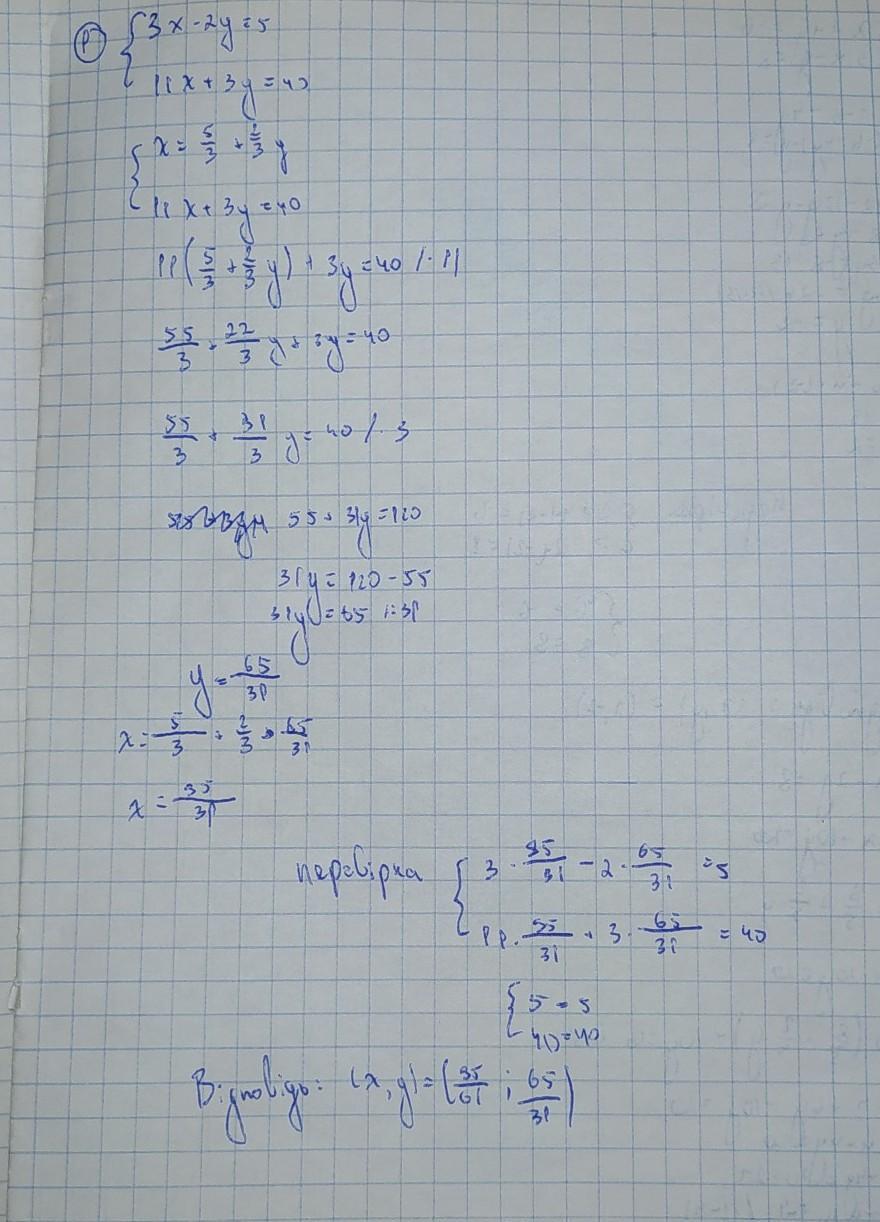 1) { 3x - 2y = 5
11x + 3y = 40
{ x = 5/3 + 2/3 y
11x + 3y = 40
11(5/3 + 2/3 y) + 3y = 40 /· 11
55/3 + 22/3 y + 3y = 40
55/3 + 31/3 y = 40 /· 3
55 + 31y = 120
31y = 120 - 55
31y = 65 /: 31
y = 65/31
x = 5/3 + 2/3 · 65/31
x = 95/31
перевірка { 3 · 95/31 - 2 · 65/31 = 5
11 · 95/31 + 3 · 65/31 = 40
{ 5 = 5
40 = 40
Відповідь: (x, y) = (95/31 ; 65/31)